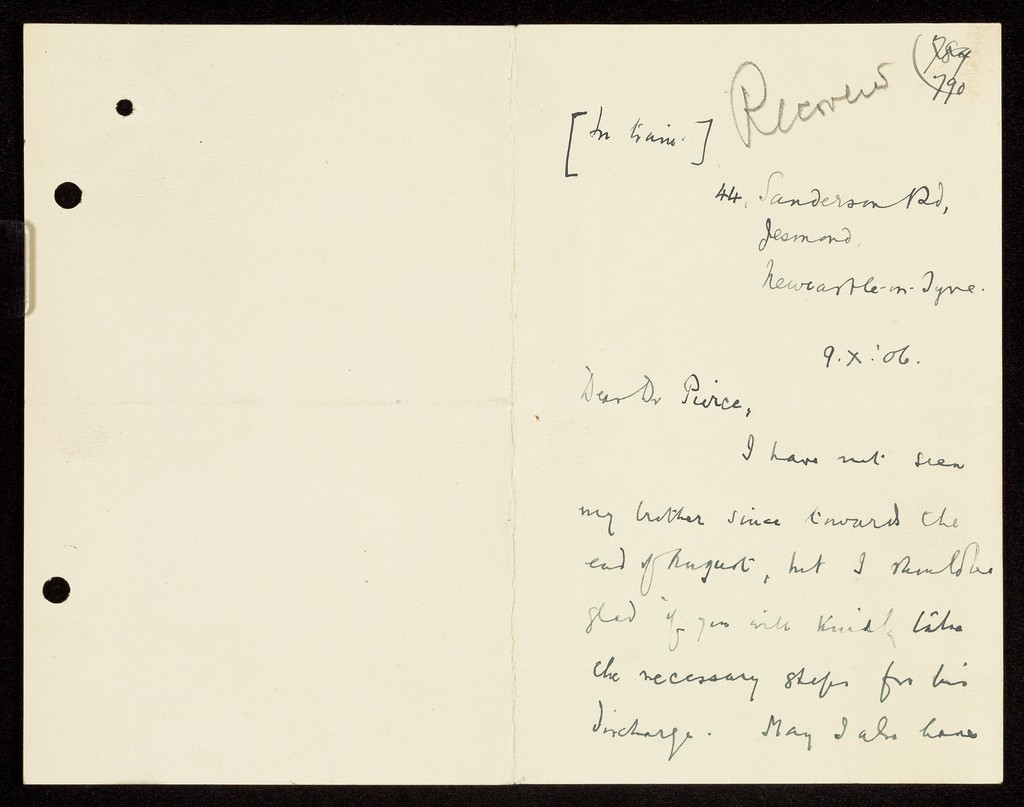 (789
790
Recovered
[In train.]
44, Sanderson Rd,
Jesmond,
Newcastle-on-Tyne.
9.X.'06.
Dear Dr Pierce,
I have not seen
my brother since towards the
end of August, but I should be
glad if you will kindly take
the necessary steps for his
discharge. May I also have